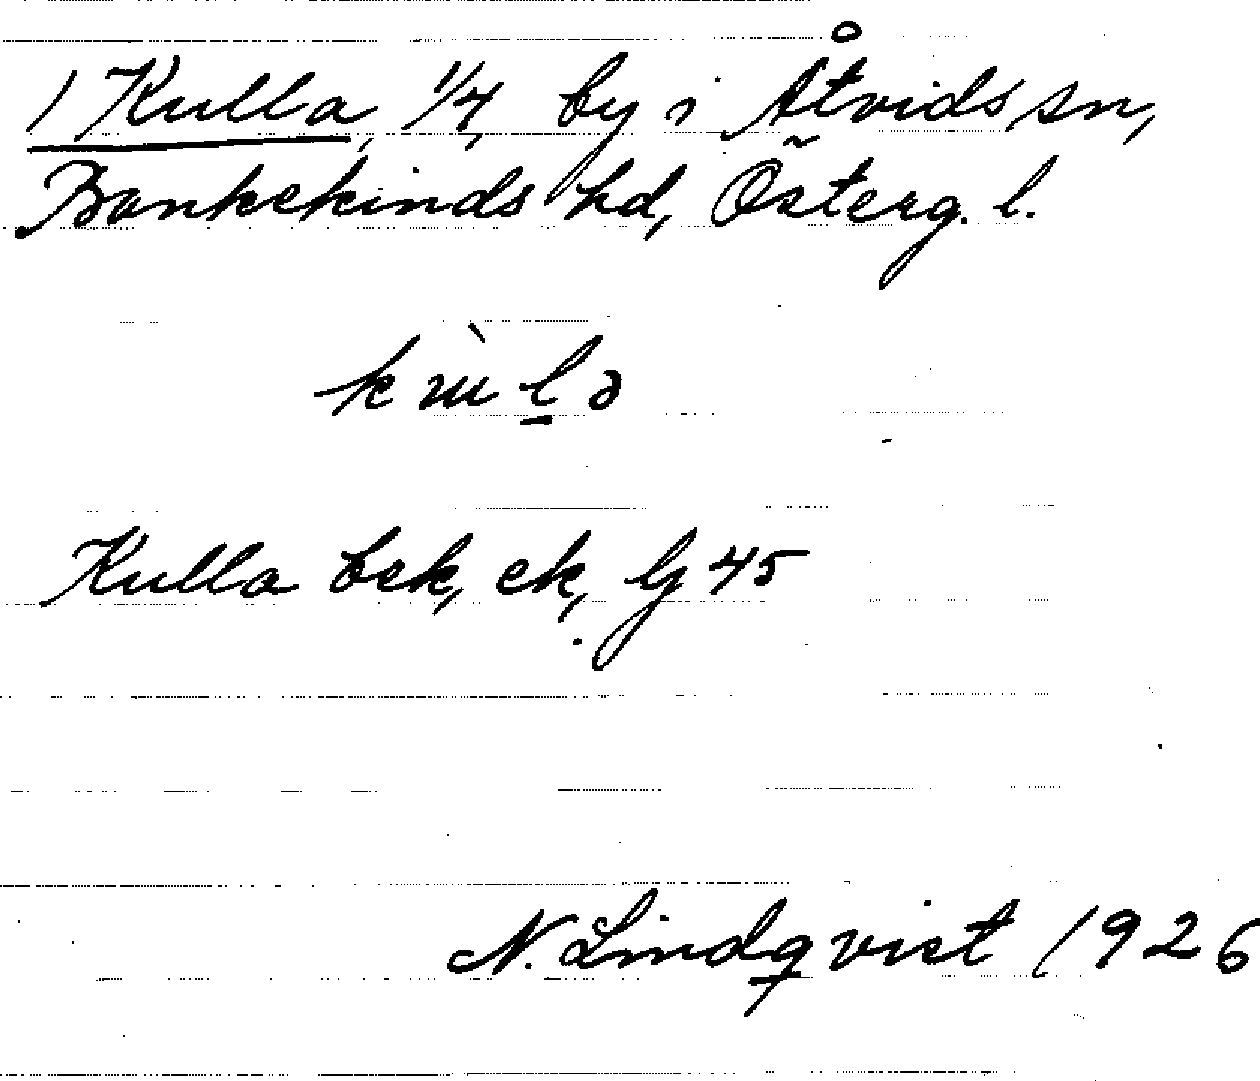 1 Kulla, 1/4, by i Åtvids sn,
Bankekinds hd, Österg. l.
Kulla bek, ek, Gj 45
N. Lindqvist 1926